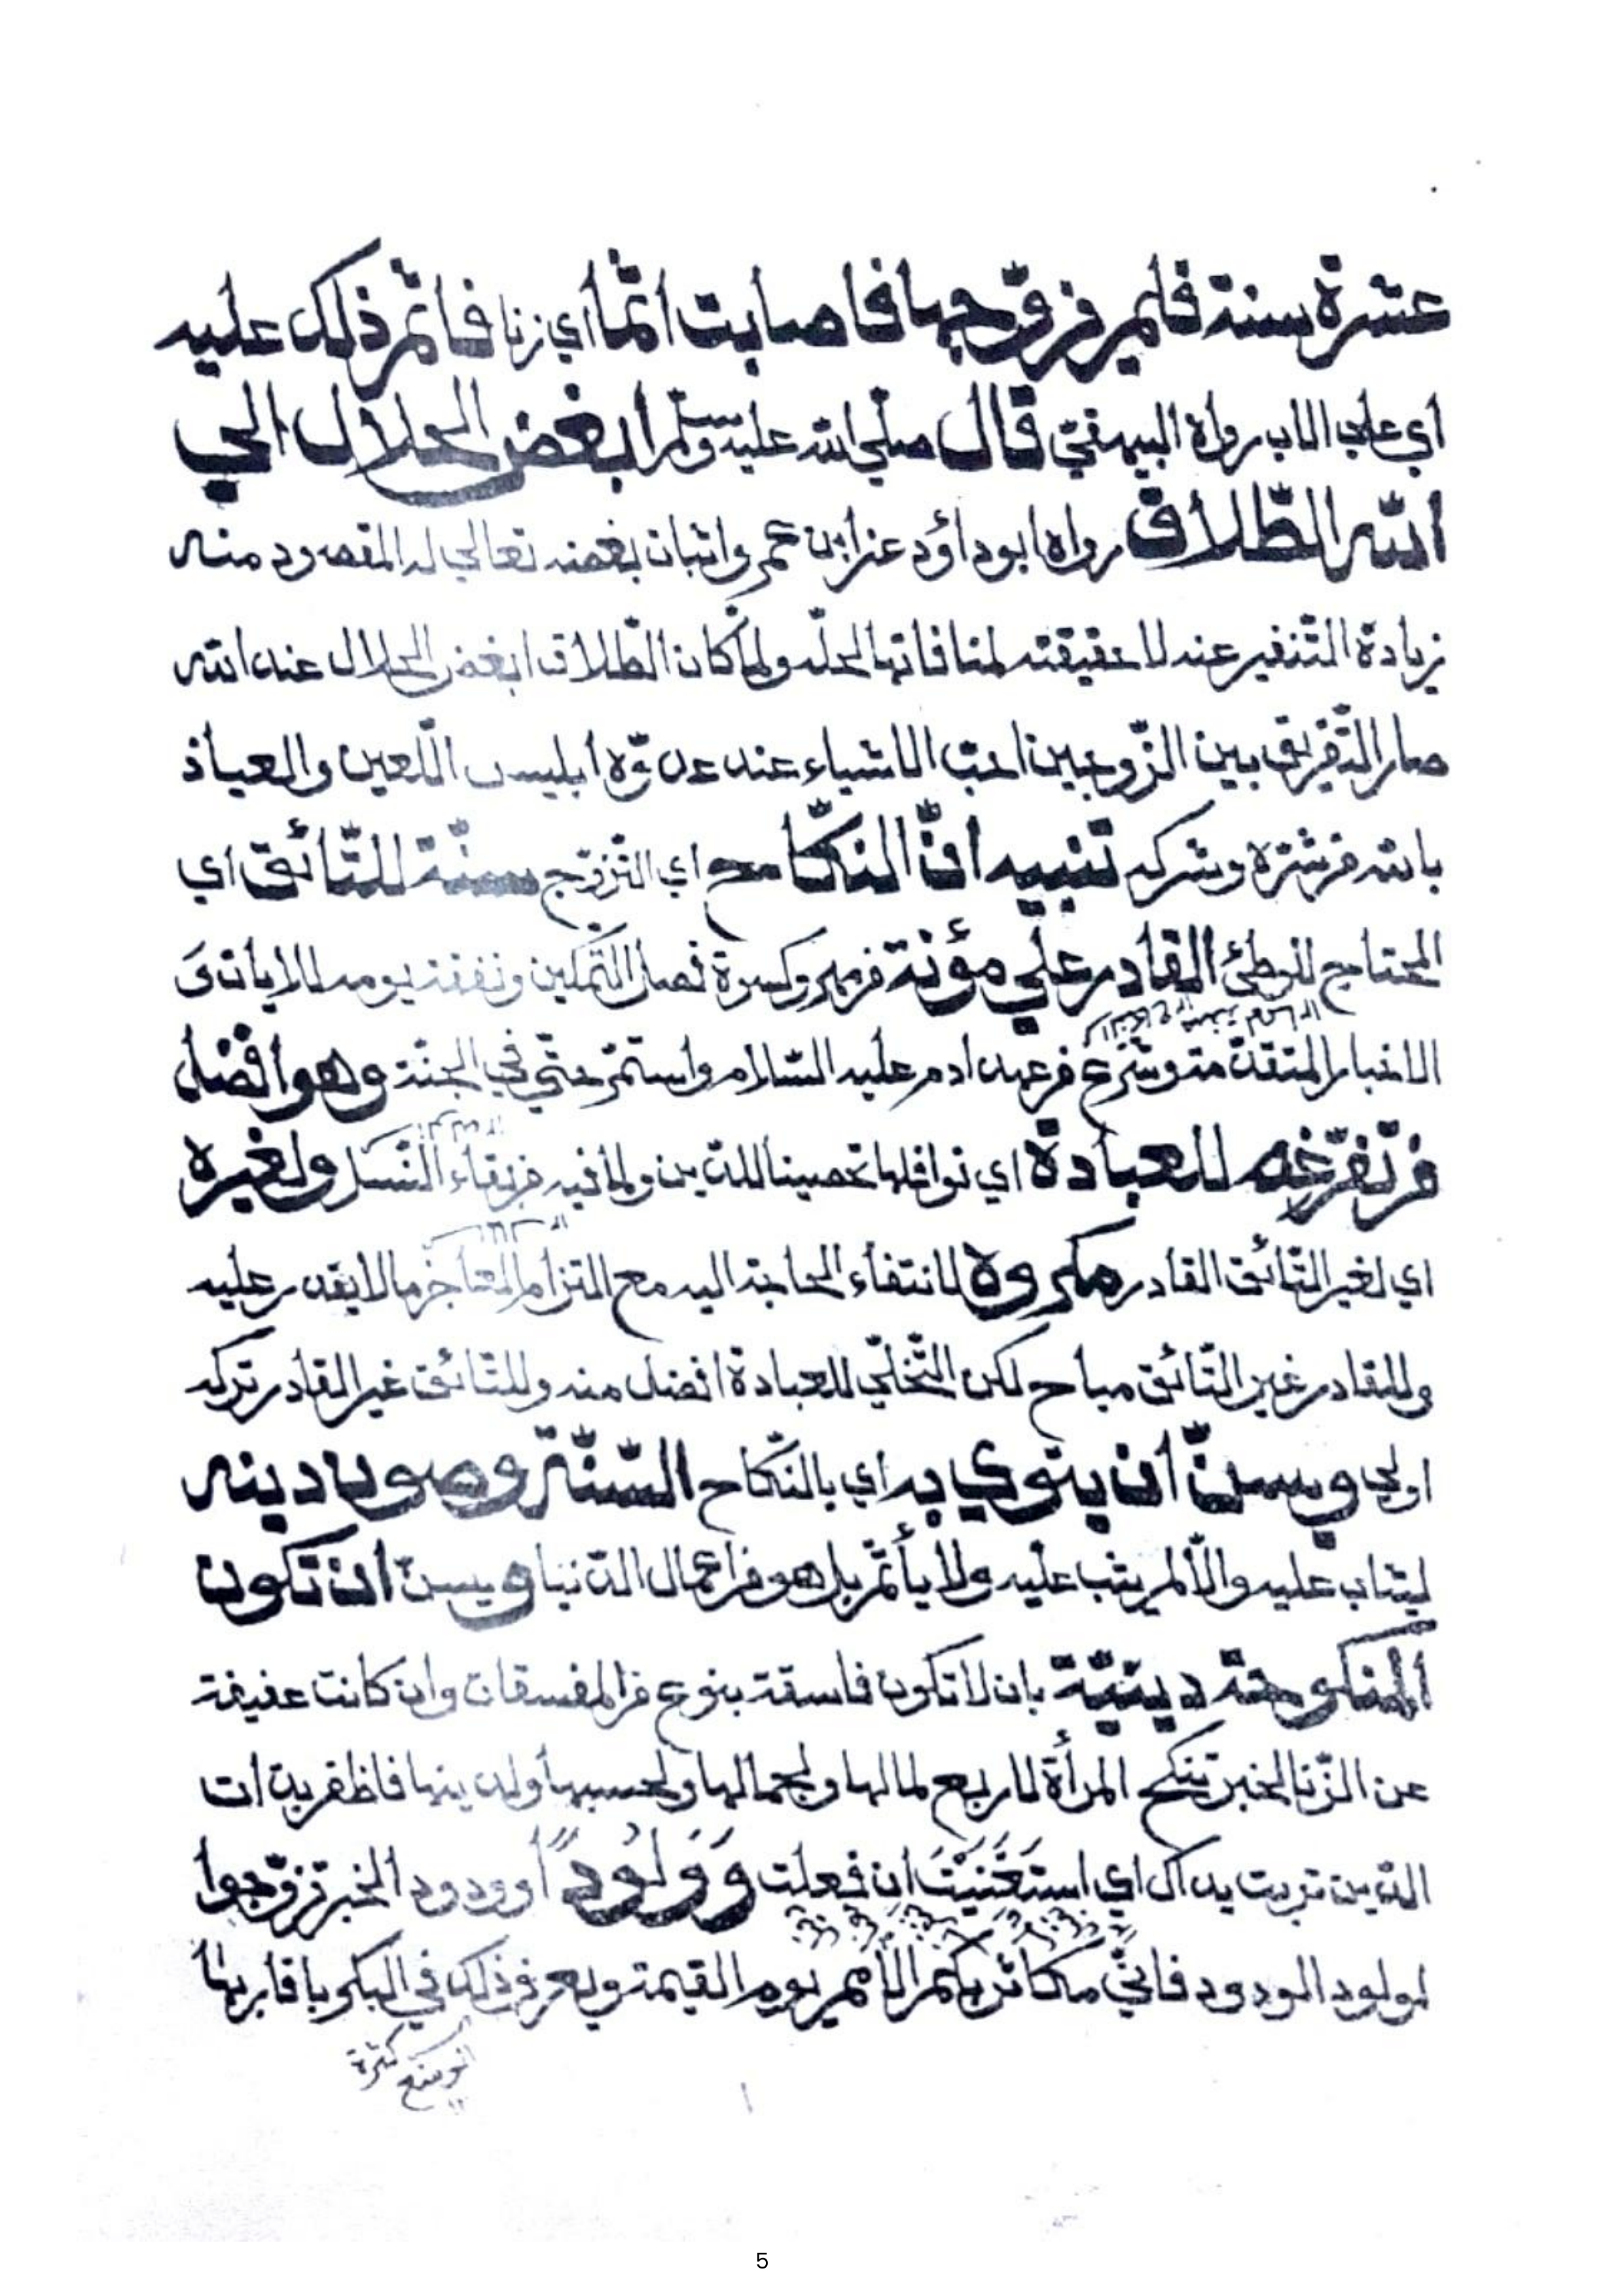 عشرة سنة فلم يزوّجها فاصابت اثما أي زنا فاثم ذلك عليه
أي على الاب رواه البيهقيّ قال صلّى الله عليه وسلّم ابغض الحلال الى
الله الطّلاق رواه ابوداؤد عن ابن عمر واثبات بغضه تعالى له المقصود منه
زيادة التّنفير عنه لا حقيقته لمنافاتها لحلّه ولمّا كان الطّلاق ابغض الحلال عند الله
صار التّفريق بين الزّوجين احبّ الاشياء عند عدوّه ابليس اللّعين والعياذ
بالله من شرّه وشركه تنبيه انّ النكّاح اي التّزوّج سنّة للتّائق اي
المحتاج للوطئ القادر على مؤنة من مهر وكسوة فصل التّمكين ونفقة يومه للايات و
الاخبار المتقدّمة وشرع من عهد ادم عليه السّلام واستمرّ حتّى في الجنّة وهو افضل
من تفرّغه للعبادة اي نوافلها تحصينا للدّين ولما فيه من بقاء النّسل ولغيره
اي لغير التّائق القادر مكروه لانتفاء الحاجة اليه مع التزام العاجز مالا يقدر عليه
وللقادر غير التّائق مباح لكن التّخلّي للعبادة افضل منه وللتّائق غير القادر تركه
اولى ويسنّ ان ينوي به اي بالنّكاح السّنّة وصون دينه
ليثاب عليه والاّ لم يثب عليه ولا يأثم بل هو من اعمال الدّنيا ويسنّ ان تكون
المنكوحة دينيّة بان لا تكون فاسقة بنوع من المفسقات وان كانت عفيفة
عن الزّنا لخبر تنكح المرأة لاربع لمالها ولجمالها ولحسبها ولدينها فاظفر بذات
الدّين تربت يداك اي استَغنَيْتَ ان فعلت وَوَلُودًا وودود الخبر تزوّجوا
لولود الودود فانيّ مكاثر بكم الأمم يوم القيمة ويعرف ذلك في البكر باقاربها